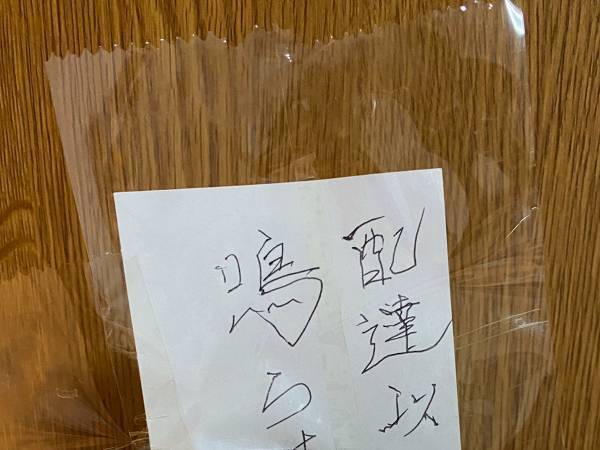 配達以
鳴ら